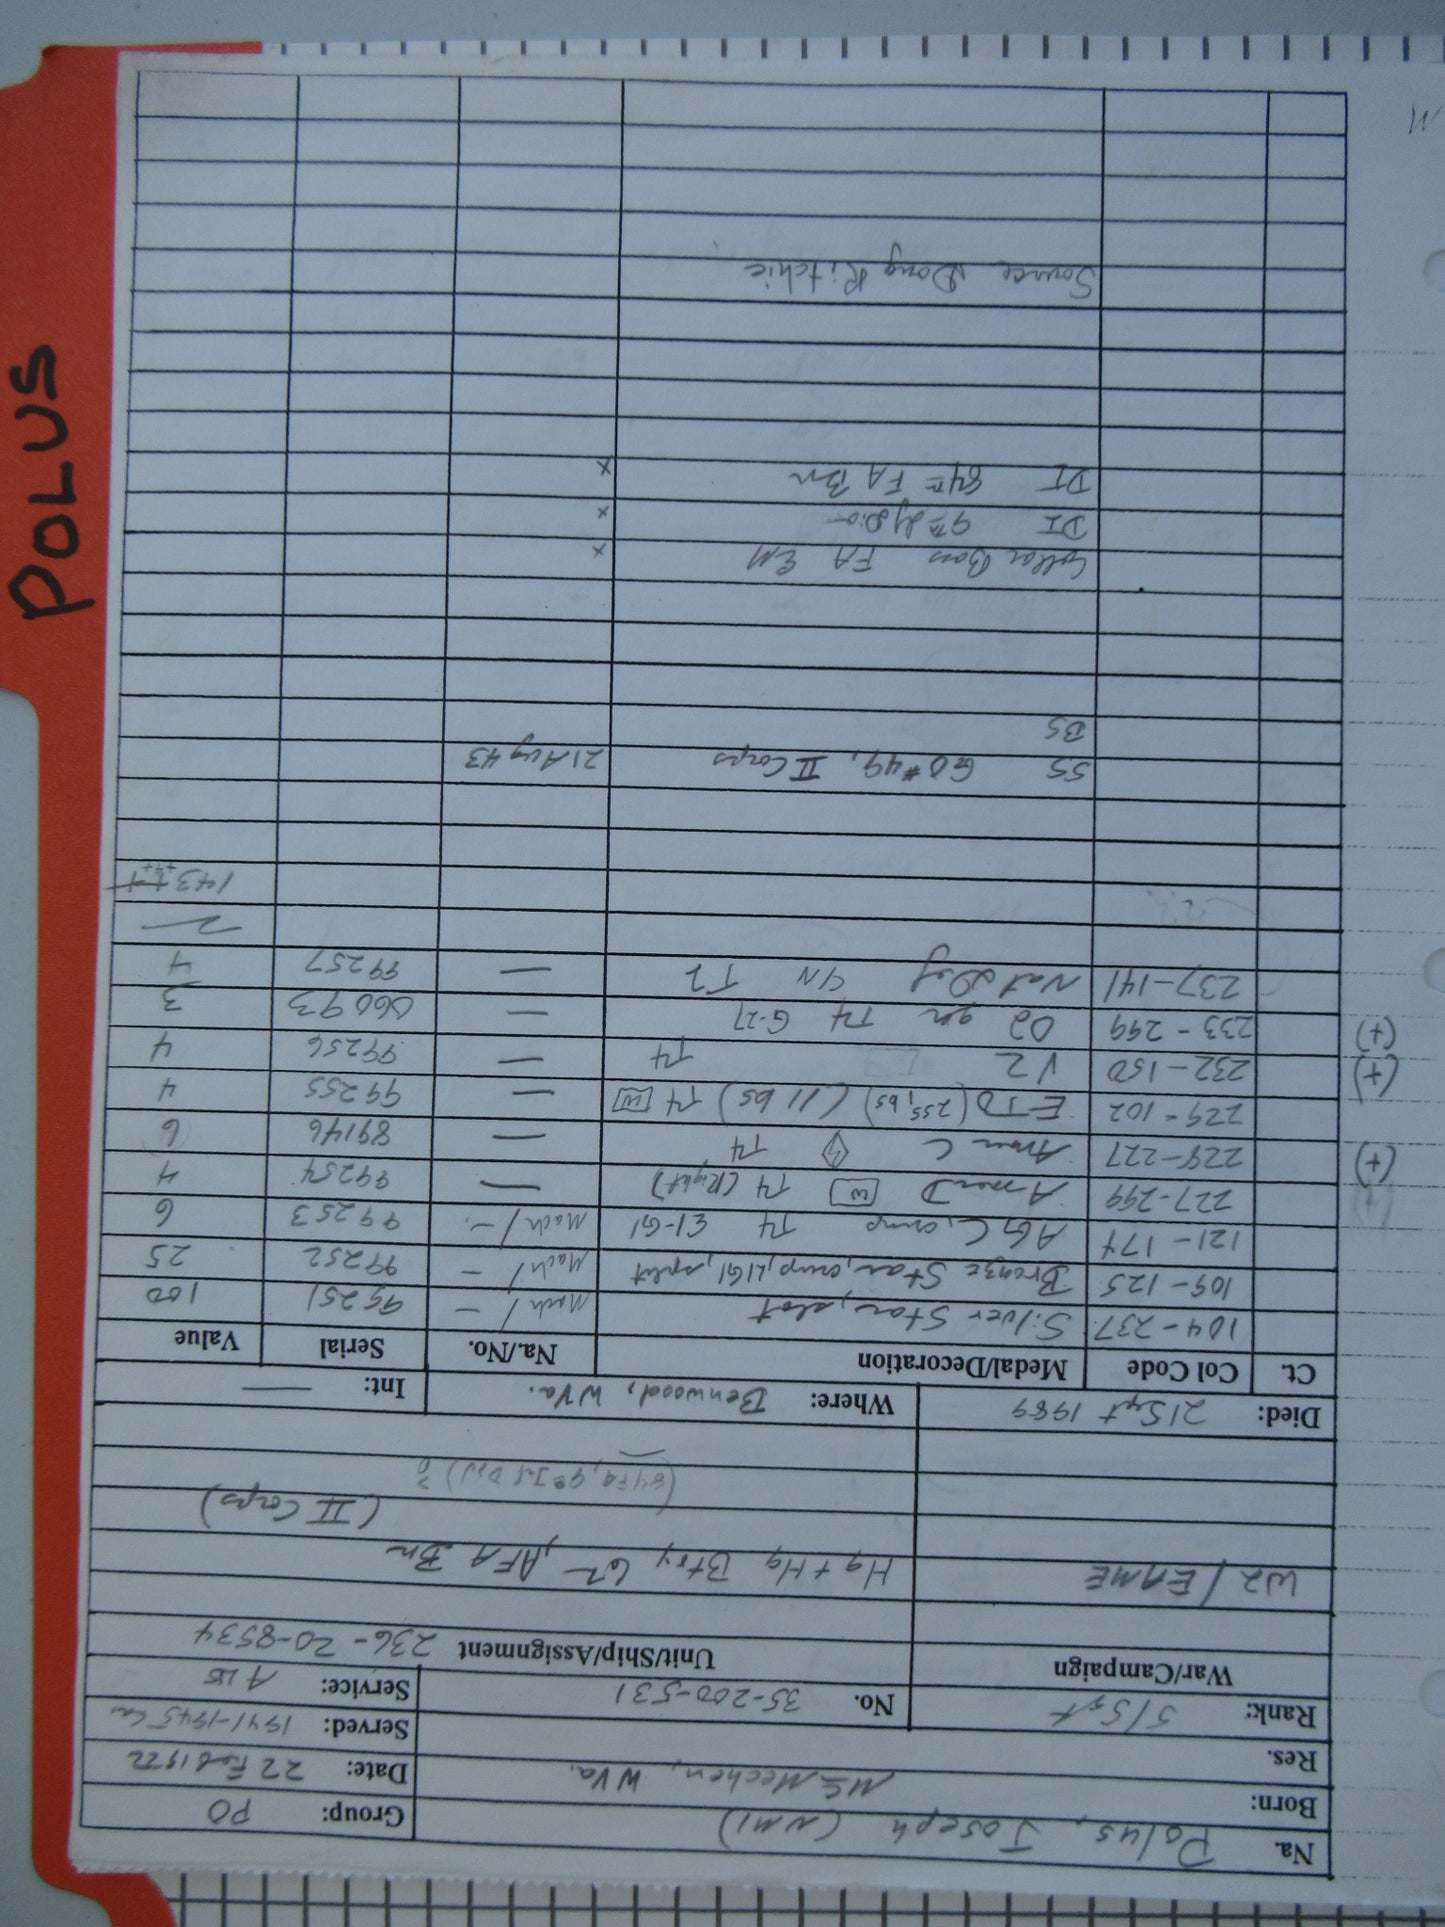 POLUS
Na. Polus, Joseph (NMI) Group: PO
Born: McMechen, W Va. Date: 22 Feb 1922
Res. Served: 1941-1945 ca.
Rank: S/Sgt No. 35-200-531 Service: AUS
War/Campaign Unit/Ship/Assignment 236-20-8534
W2/EAME Hq + Hq Btry 62 AFA Bn
(II Corps)
(84 FA, 9th Inf Div) ?
Died: 21 Sept 1989 Where: Benwood, W Va. Int: —
Ct. Col Code Medal/Decoration Na./No. Serial Value
104-237 Silver Star, slot Mach/— 99251 100
109-125 Bronze Star, crmp, LIGI, split Mach/— 99252 25
121-174 AGC, crmp T4 EI-GI Mach/— 99253 6
227-299 Amer D W T4 (Right) — 99254 4
228-227 Amer C T4 — 89146 6
229-102 ETO (2ss, bs) (11 bs) T4 W — 99255 4
232-150 V2 T4 — 99256 4
233-299 O2 gr T4 G-27 — 06093 3
237-141 Nat Def GN T2 — 99257 4
143++
SS GO #49, II Corps 21 Aug 43
BS
Collar Bars FA EM x
DI 9th x
DI 84th FA Bn x
Source Doug Ritchie
(+)
(+)
(+)